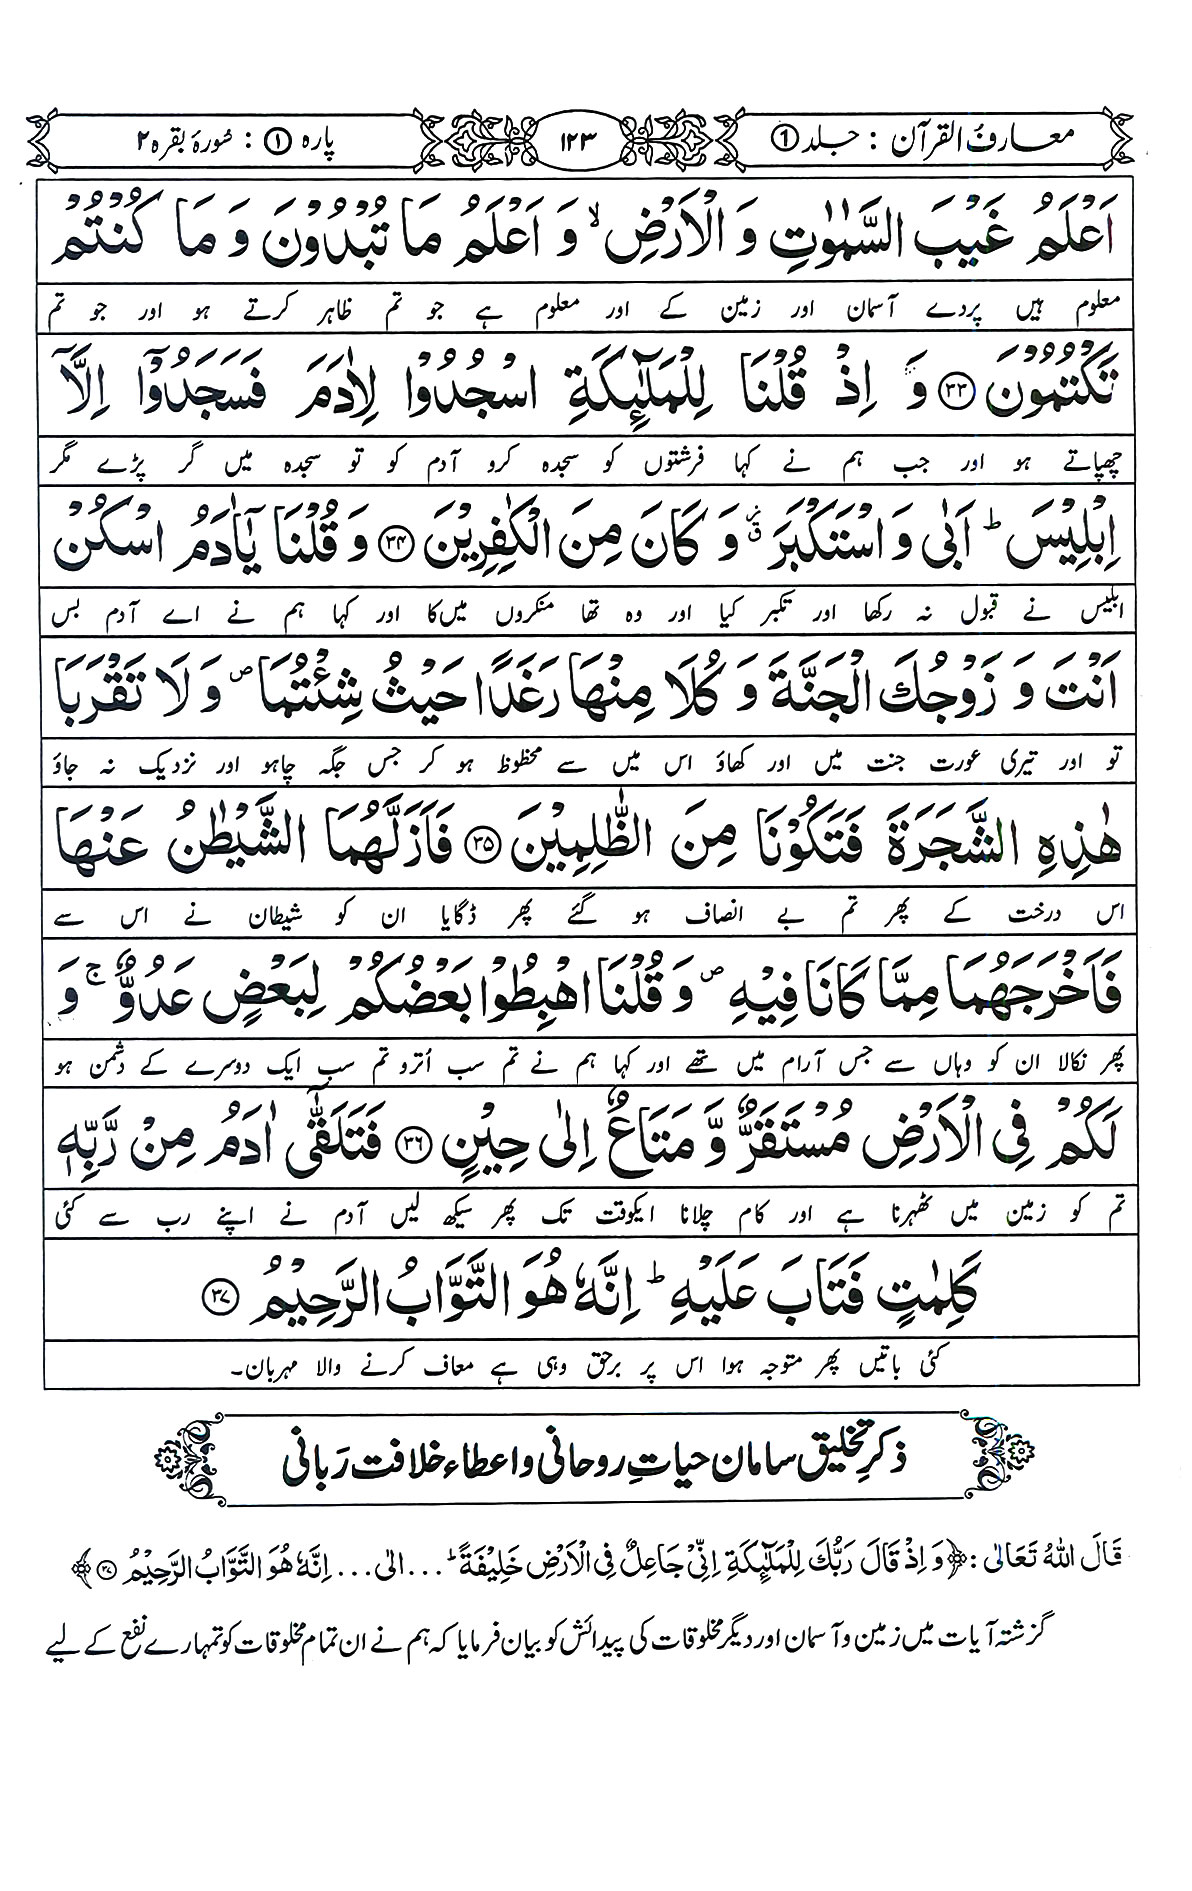 معارفُ القرآن : جلد ①
۱۲۳
پارہ ① : سُورۂ بقرہ ۲
اَعْلَمُ غَيْبَ السَّمٰوٰتِ وَ الْاَرْضِ ۙ وَ اَعْلَمُ مَا تُبْدُوْنَ وَ مَا كُنْتُمْ
معلوم ہیں پردے آسمان اور زمین کے اور معلوم ہے جو تم ظاہر کرتے ہو اور جو تم
تَكْتُمُوْنَ ﴿۳۳﴾ وَ اِذْ قُلْنَا لِلْمَلٰٓئِكَةِ اسْجُدُوْا لِاٰدَمَ فَسَجَدُوْۤا اِلَّاۤ
چھپاتے ہو اور جب ہم نے کہا فرشتوں کو سجدہ کرو آدم کو تو سجدہ میں گر پڑے مگر
اِبْلِيْسَ ؕ اَبٰى وَ اسْتَكْبَرَ ۗ وَ كَانَ مِنَ الْكٰفِرِيْنَ ﴿۳۴﴾ وَ قُلْنَا يٰۤاٰدَمُ اسْكُنْ
ابلیس نے قبول نہ رکھا اور تکبر کیا اور وہ تھا منکروں میں کا اور کہا ہم نے اے آدم بس
اَنْتَ وَ زَوْجُكَ الْجَنَّةَ وَ كُلَا مِنْهَا رَغَدًا حَيْثُ شِئْتُمَا ۪ وَ لَا تَقْرَبَا
تو اور تیری عورت جنت میں اور کھاؤ اس میں سے محظوظ ہو کر جس جگہ چاہو اور نزدیک نہ جاؤ
هٰذِهِ الشَّجَرَةَ فَتَكُوْنَا مِنَ الظّٰلِمِيْنَ ﴿۳۵﴾ فَاَزَلَّهُمَا الشَّيْطٰنُ عَنْهَا
اس درخت کے پھر تم بے انصاف ہو گئے پھر ڈگایا ان کو شیطان نے اس سے
فَاَخْرَجَهُمَا مِمَّا كَانَا فِيْهِ ۪ وَ قُلْنَا اهْبِطُوْا بَعْضُكُمْ لِبَعْضٍ عَدُوٌّ ۚ وَ
پھر نکالا ان کو وہاں سے جس آرام میں تھے اور کہا ہم نے تم سب اُترو تم سب ایک دوسرے کے دشمن ہو
لَكُمْ فِى الْاَرْضِ مُسْتَقَرٌّ وَّ مَتَاعٌ اِلٰى حِيْنٍ ﴿۳۶﴾ فَتَلَقّٰۤى اٰدَمُ مِنْ رَّبِّهٖ
تم کو زمین میں ٹھہرنا ہے اور کام چلانا ایک وقت تک پھر سیکھ لیں آدم نے اپنے رب سے کئی
كَلِمٰتٍ فَتَابَ عَلَيْهِ ؕ اِنَّهٗ هُوَ التَّوَّابُ الرَّحِيْمُ ﴿۳۷﴾
کئی باتیں پھر متوجہ ہوا اس پر برحق وہی ہے معاف کرنے والا مہربان۔
ذکرِ تخلیق سامان حیاتِ روحانی و اعطاء خلافت رَبانی
قَالَ اللهُ تَعَالٰى : ﴿وَ اِذْ قَالَ رَبُّكَ لِلْمَلٰٓئِكَةِ اِنِّىْ جَاعِلٌ فِى الْاَرْضِ خَلِيْفَةً ؕ ... الٰی ... اِنَّهٗ هُوَ التَّوَّابُ الرَّحِيْمُ ۳۷﴾
گزشتہ آیات میں زمین و آسمان اور دیگر مخلوقات کی پیدائش کو بیان فرمایا کہ ہم نے ان تمام مخلوقات کو تمہارے نفع کے لیے